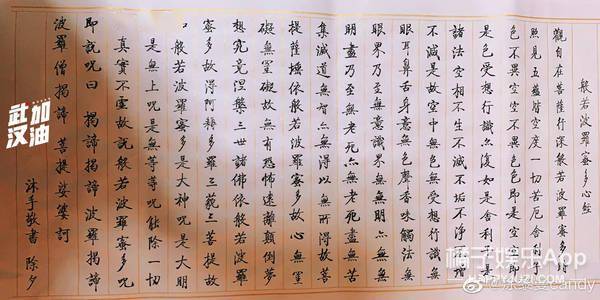 般若波羅蜜多心經
觀自在菩薩行深般若波羅蜜多時
照見五蘊皆空度一切苦厄舍利子
色不異空空不異色色即是空空即
是色受想行識亦復如是舍利子是
諸法空相不生不滅不垢不淨不增
不減是故空中無色無受想行識無
眼耳鼻舌身意無色聲香味觸法無
眼界乃至無意識界無無明亦無無
明盡乃至無老死亦無老死盡無苦
集滅道無智亦無得以無所得故菩
提薩埵依般若波羅蜜多故心無罣
礙無罣礙故無有恐怖遠離顛倒夢
想究竟涅槃三世諸佛依般若波羅
蜜多故得阿耨多羅三藐三菩提故
般若波羅蜜多是大神呪是大明
是無上呪是無等等呪能除一切
真實不虛故說般若波羅蜜多呪
即說呪曰 揭諦揭諦波羅揭諦
波羅僧揭諦 菩提娑婆訶
沐手敬書 除夕
武汉
加油
橘子娱乐App